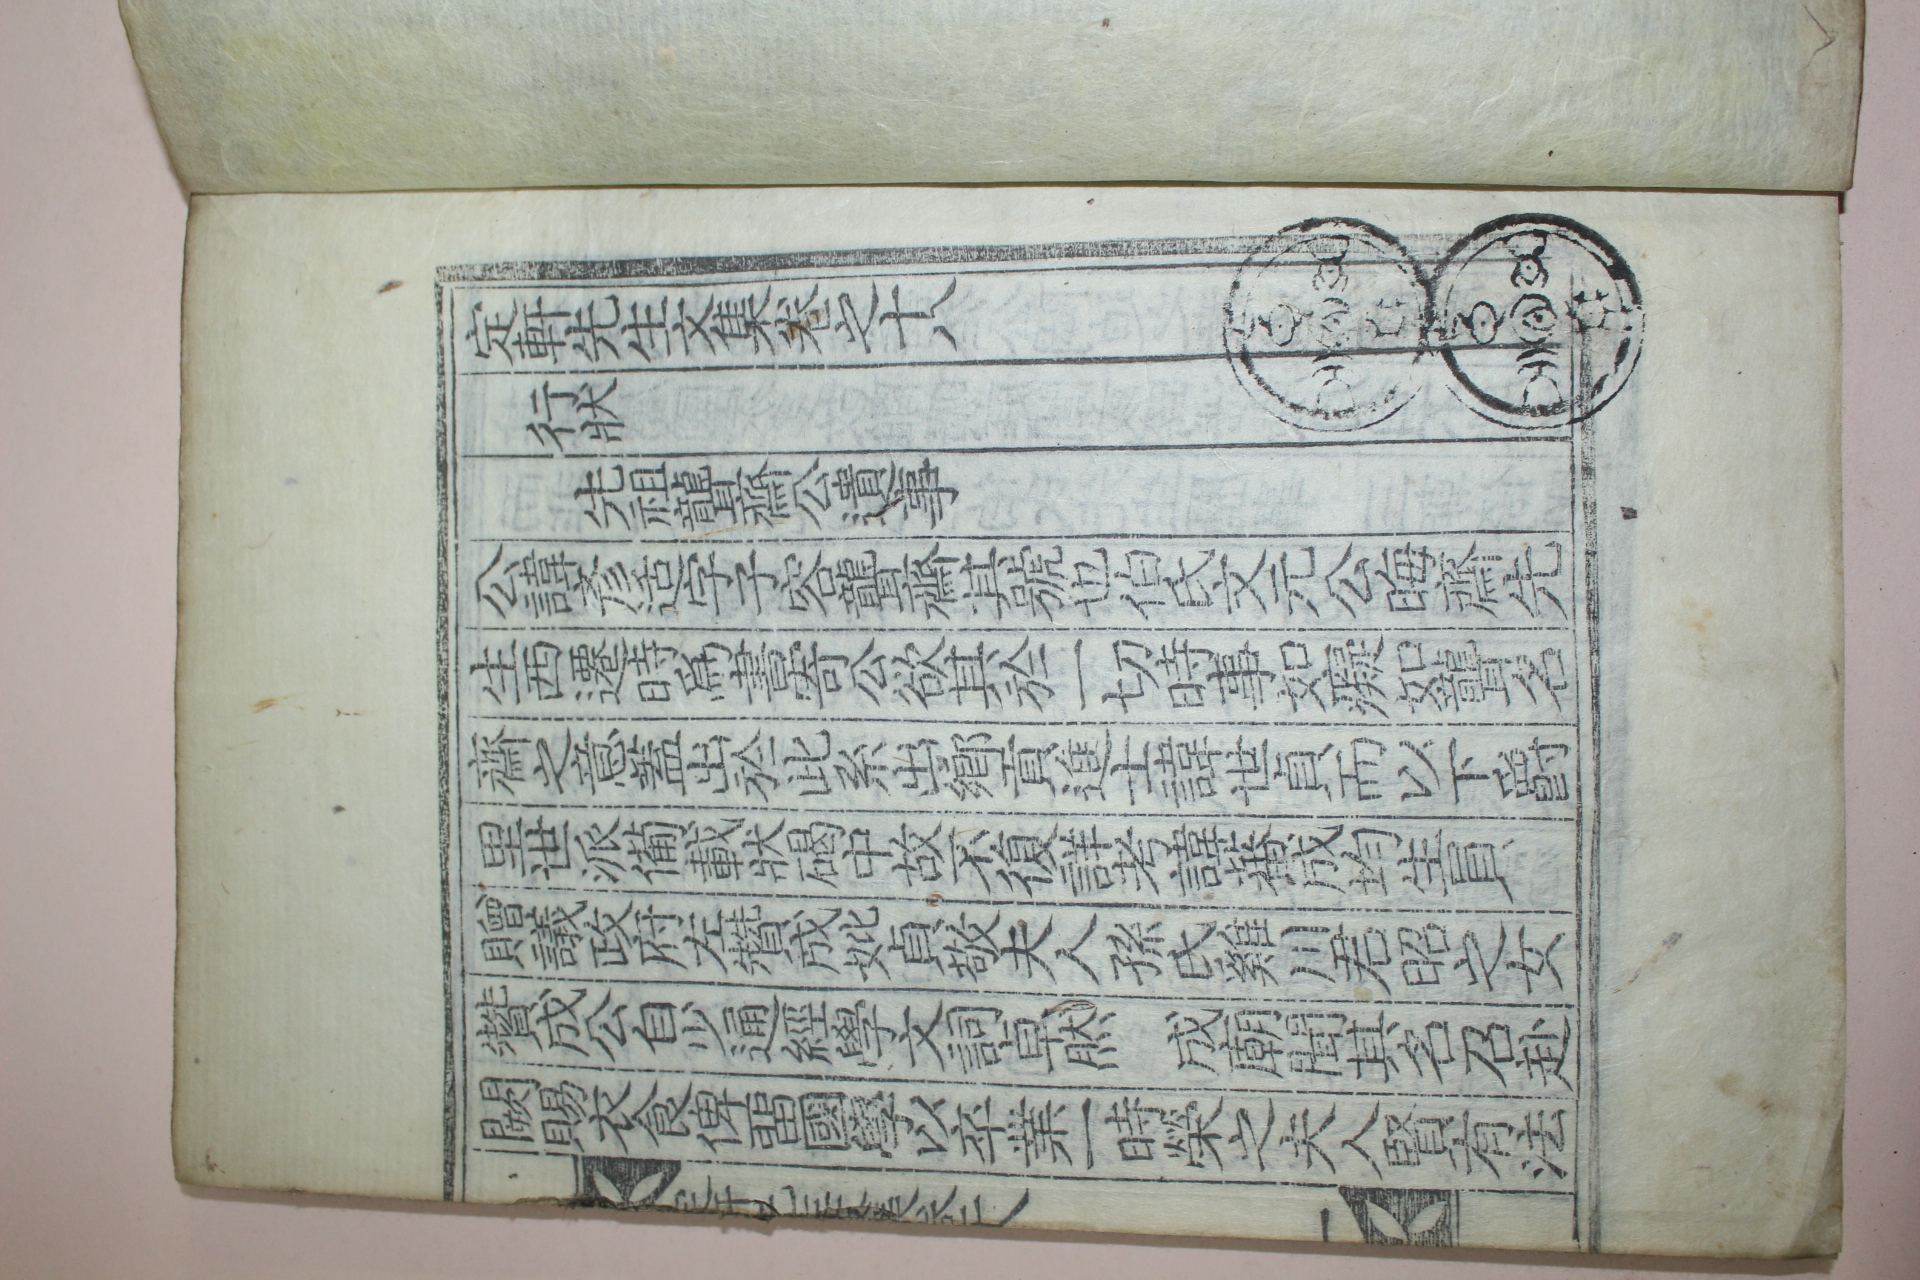 定軒先生文集卷之十八
行狀
先祖聾齋公遺事
公諱彥适字子容聾齋其號也伯氏文元公晦齋先
生西遷時爲書寄公欲其於一切時事如癡如聾名
齋之意蓋出於此系出鄕貢進士諱世貞而以下爵
里世派備載狀碣中故不復詳考諱蕃成均生員
贈議政府左贊成妣貞敬夫人孫氏雞川君昭之女
贊成公自少通經學文詞卓然 成廟聞其名召赴
闕賜衣食俾留國學以卒業一時榮之夫人賢有法
定軒先生文集卷十八
一